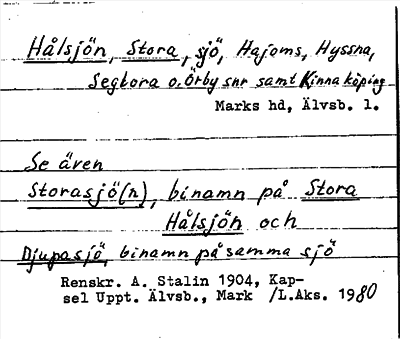 Hålsjön, Stora, sjö, Hajoms, Hyssna,
Seglora o. Örby snr samt Kinna köping
Marks hd, Älvsb. l.
Se även
Storasjö(n), binamn på Stora
Hålsjön och
Djupasjö, binamn på samma sjö
Renskr. A. Stalin 1904, Kap-
sel Uppt. Älvsb., Mark /L.Aks. 1980